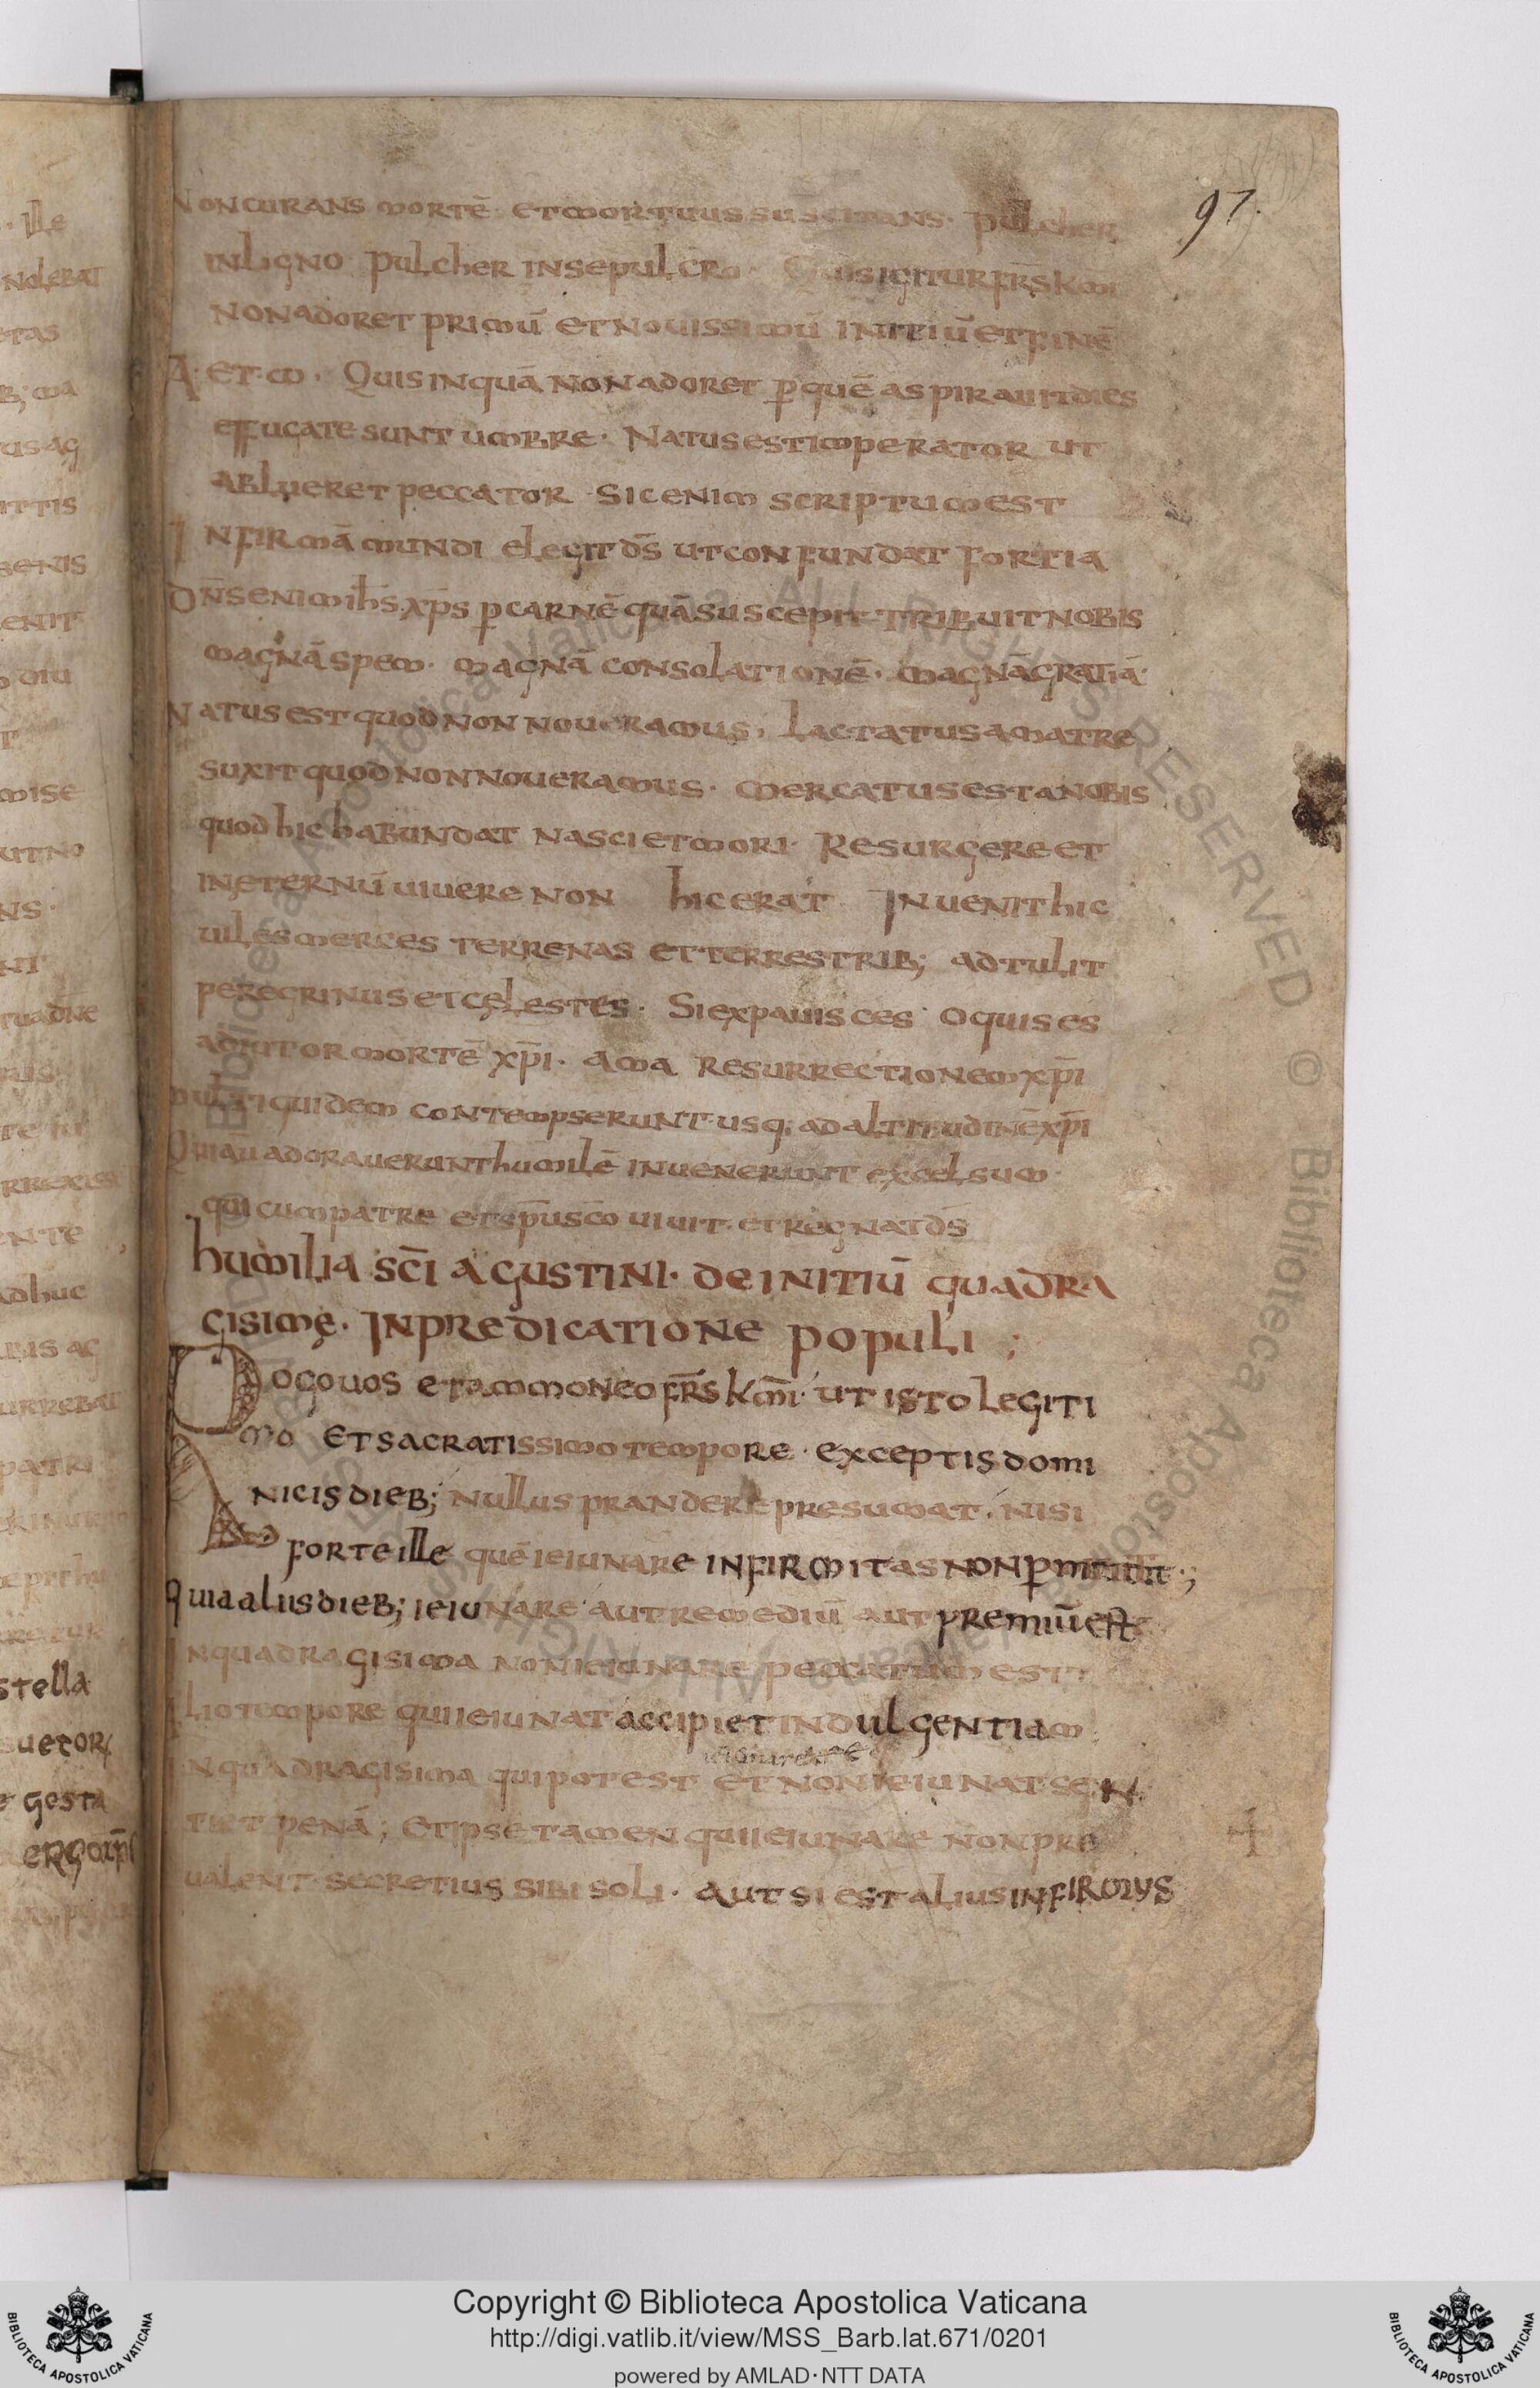 97.
Noncurans mortē· et mortuus suscitans· pulcher
in ligno pulcher in sepulcro· Quis igitur fr̄s km̄i
non adoret primū et nouissimū initiū et finē
A· et· ω· Quis inquā non adoret ꝑ quē aspirauit dies
effucate sunt umbre· Natus est imperator ut
ablueret peccator· Sic enim scriptum est
Infirmā mundi elegit d̄s ut confundat fortia
Dn̄s enim ih̄s xp̄s ꝑ carnē quā suscepit tribuit nobis
magnā spem· magnā consolationē· magnā gratiā·
Natus est quod non noueramus, Lactatus a matre
suxit quod non noueramus· Mercatus est a nobis
quod hic habundat nasci et mori· Resurgere et
in ęternū uiuere non hic erat Inuenit hic
uiles merces terrenas et terrestrib; adtulit
peregrinus et cęlestes· Si expauisces o quis es
adiutor mortē xp̄i· ama resurrectionem xp̄i
Multi quidem contempserunt usq; ad altitudinē xp̄i
Qui aū adorauerunt humilē inuenerunt excelsum·
qui cum patre et sp̄u sc̄o uiuit· et regnat d̄s
humilia sc̄i agustini· de initiū quadra
gisimę· In predicatione populi;
Rogo uos et ammoneo fr̄s km̄i· ut isto legiti
mo et sacratissimo tempore· exceptis domi
nicis dieb; nullus prandere presumat· nisi
forte ille quē ieiunare infirmitas non ꝑmittit·;
Quia aliis dieb; ieiunare aut remediū aut premiū est
In quadragisima non ieiunare peccatum est·
Alio tempore qui ieiunat accipiet indulgentiam
In quadragisima qui potest et non ieiunat sen
tiet penā; Et ipse tamen qui ieiunare non pre
ualent· secretius sibi soli· aut si est alius infirmys
· ille
nolebat
etas
b; ma
us ag
ittis
enit
diu
mise
ut no
ns·
patri
stella
suetor
gesta
Copyright © Biblioteca Apostolica Vaticana
http://digi.vatlib.it/view/MSS_Barb.lat.671/0201
powered by AMLAD·NTT DATA
BIBLIOTECA APOSTOLICA VATICANA
BIBLIOTECA APOSTOLICA VATICANA